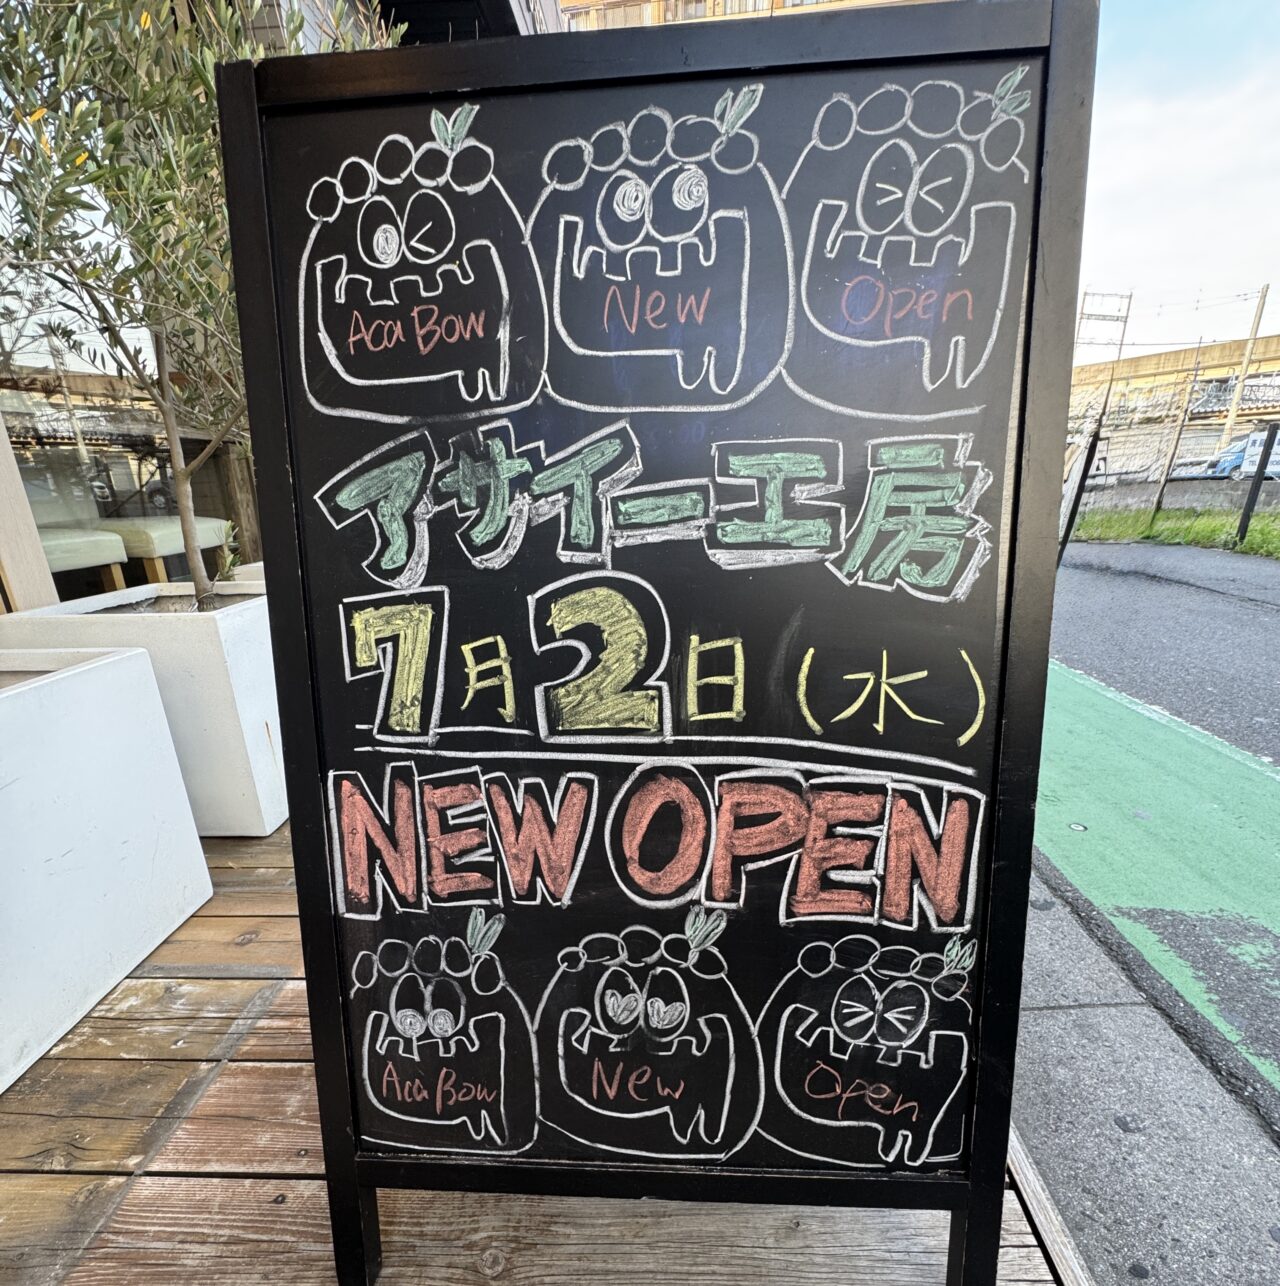 Aca Bow New Open
アサイー工房
7月2日(水)
NEW OPEN
Aca Bow New Open